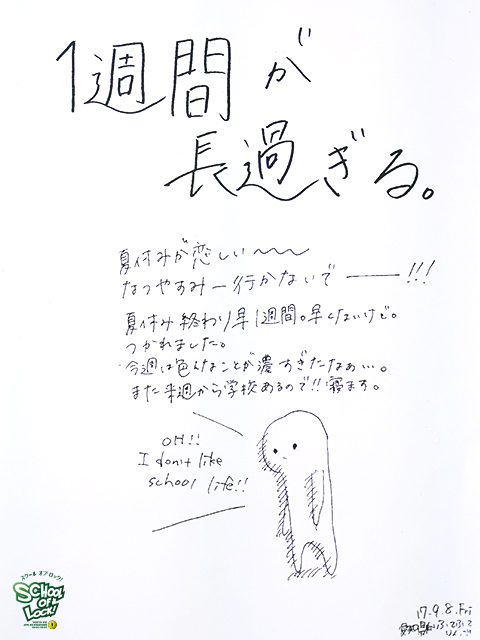 1週間が
長過ぎる。
夏休みが恋しい〜〜
なつやすみー行かないで――!!!
夏休み終わり早1週間。早くないけど。
つかれました。
今週は色んなことが濃すぎたなぁ…。
また来週から学校あるので!!寝ます。
OH!!
I don't like
school life!!
スクールオブロック!
SCHOOL
OF
LOCK!
17.9.8.Fri